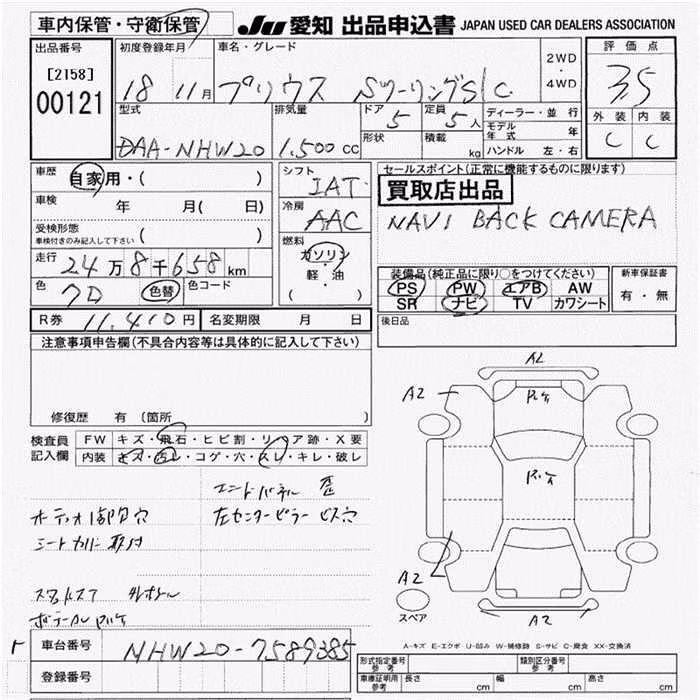 車内保管・守衛保管
JU 愛知 出品申込書 JAPAN USED CAR DEALERS ASSOCIATION
出品番号
[2158]
00121
初度登録年月
18 11月
車名・グレード
プリウス SツーリングS
2WD
・
4WD
評価点
3.5
外装 内装
C C
型式
DAA-NHW20
排気量
1.500 cc
ドア 5
定員 5 人
形状
積載 kg
ディーラー・並行
モデル年式 年
ハンドル 左・右
車歴 自家用・( )
車検 年 月( 日)
受検形態 ( )
車検付きのみ記入して下さい
走行 24万8千658 km
色 色替 色コード
シフト IAT
冷房 AAC
燃料
ガソリン
軽・油
( ・ )
セールスポイント(正常に機能するものに限ります)
買取店出品
NAVI BACK CAMERA
装備品(純正品に限り○をつけてください)
PS PW エアB AW
SR ナビ TV カワシート
新車保証書
有・無
R券 11,410円 名変期限 月 日
後日品
注意事項申告欄(不具合内容等は具体的に記入して下さい)
修復歴 有(箇所 )
検査員記入欄
FW キズ・飛石・ヒビ割・リペア跡・X要
内装 キズ・汚レ・コゲ・穴・スレ・キレ・破レ
エンドパネル 歪
オーディオ 穴
左センターピラー ビス穴
シートカバー取付
A2
A2
A2
A2
A2
スペア
A-キズ E-エクボ U-凹み W-補修跡 S-サビ C-腐食 XX-交換済
車台番号 NHW20-7589385
登録番号
形式指定番号
参考
類別区分番号
参考
車庫証明用
参考
長さ cm 幅 cm 高さ cm